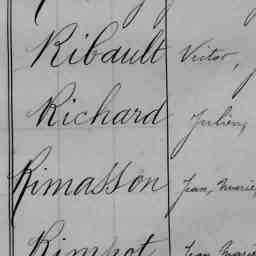 Ribault Victor,
Richard Julien,
Rimasson Jean, Marie,
Rimpot Jean Marie